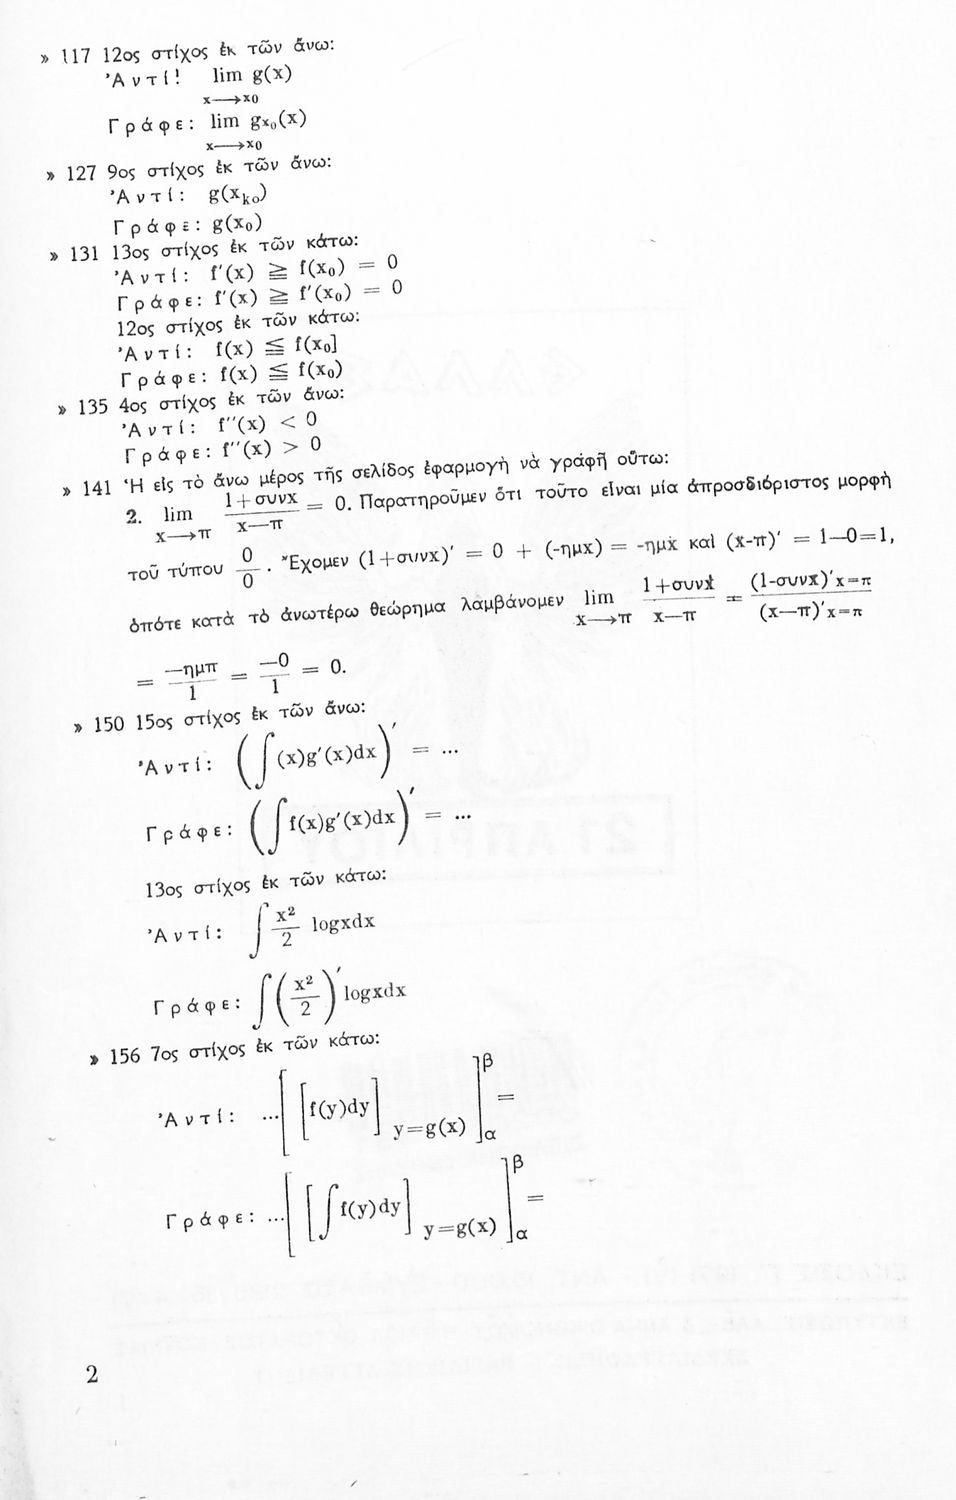 » 117 12ος στίχος ἐκ τῶν ἄνω:
Ἀντί! lim g(x)
x⟶x0
Γράφε: lim gx₀(x)
x⟶x0
» 127 9ος στίχος ἐκ τῶν ἄνω:
Ἀντί: g(xₖₒ)
Γράφε: g(x₀)
» 131 13ος στίχος ἐκ τῶν κάτω:
Ἀντί: f′(x) ≧ f(x₀) = 0
Γράφε: f′(x) ≧ f′(x₀) = 0
12ος στίχος ἐκ τῶν κάτω:
Ἀντί: f(x) ≦ f(x₀]
Γράφε: f(x) ≦ f(x₀)
» 135 4ος στίχος ἐκ τῶν ἄνω:
Ἀντί: f′′(x) < 0
Γράφε: f′′(x) > 0
» 141 Ἡ εἰς τὸ ἄνω μέρος τῆς σελίδος ἐφαρμογὴ νὰ γράφῆ οὕτω:
2. lim x⟶π (1+συνx)/(x—π) = 0. Παρατηροῦμεν ὅτι τοῦτο εἶναι μία ἀπροσδιόριστος μορφὴ
τοῦ τύπου 0/0. Ἔχομεν (1+συνx)′ = 0 + (-ημx) = -ημx καὶ (x-π)′ = 1—0=1,
ὁπότε κατὰ τὸ ἀνωτέρω θεώρημα λαμβάνομεν lim x⟶π (1+συνx)/(x—π) = (1-συνx)′x=π/(x—π)′x=π
= —ημπ/1 = —0/1 = 0.
» 150 15ος στίχος ἐκ τῶν ἄνω:
Ἀντί: (∫(x)g′(x)dx)′ = ...
Γράφε: (∫f(x)g′(x)dx)′ = ...
13ος στίχος ἐκ τῶν κάτω:
Ἀντί: ∫ x²/2 logxdx
Γράφε: ∫(x²/2)′logxdx
» 156 7ος στίχος ἐκ τῶν κάτω:
Ἀντί: ...[[f(y)dy]y=g(x)]β α =
Γράφε: ...[[∫f(y)dy]y=g(x)]β α =
2